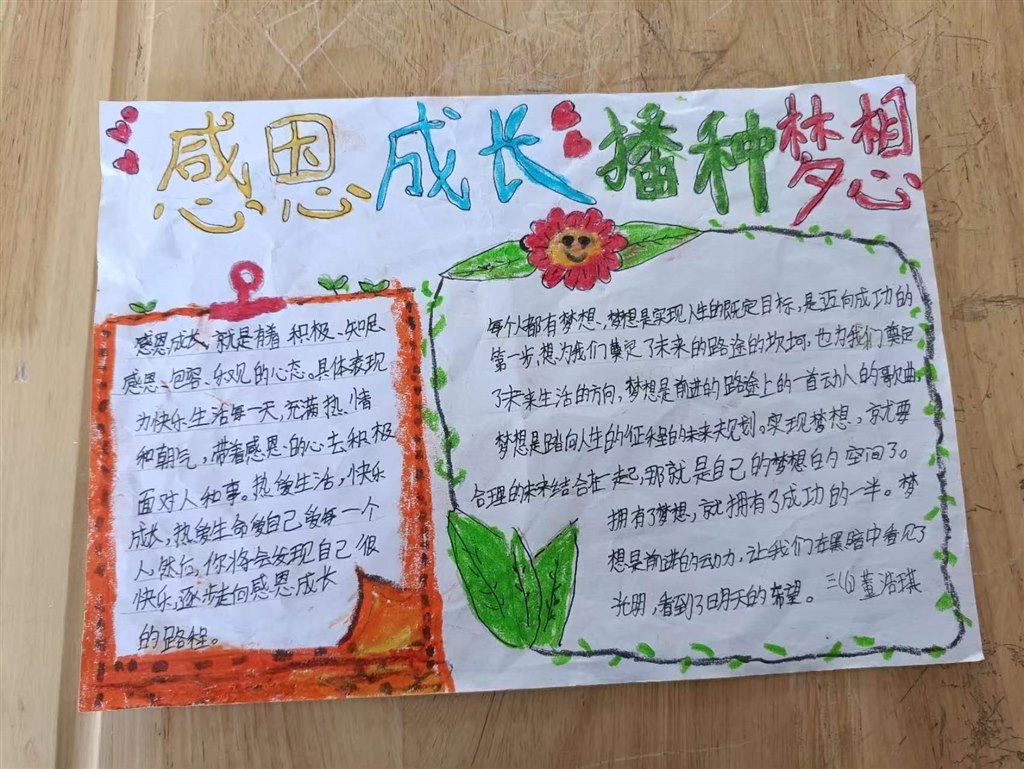 感恩 成长 播种 梦想
感恩成长,就是有着积极、知足、
感恩、包容、乐观的心态。具体表现
为快乐生活每一天,充满热情
和朝气,带着感恩的心去积极
面对人和事。热爱生活,快乐
成长,热爱生命爱自己,爱每一个
人,然后,你将会发现自己很
快乐,逐步走向感恩成长
的路程。
每个人都有梦想、梦想是实现人生的既定目标,是迈向成功的
第一步,想为我们奠定了未来的路途的坎坷,也为我们奠定
了未来生活的方向,梦想是前进的路途上的一首动人的歌曲,
梦想是踏向人生的征程的未来规划。实现梦想,就要
合理的未来结合在一起,那就是自己的梦想的空间了。
拥有了梦想,就拥有了成功的一半。梦
想是前进的动力,让我们在黑暗中看见了
光明,看到了明天的希望。 三(1)董浩琪